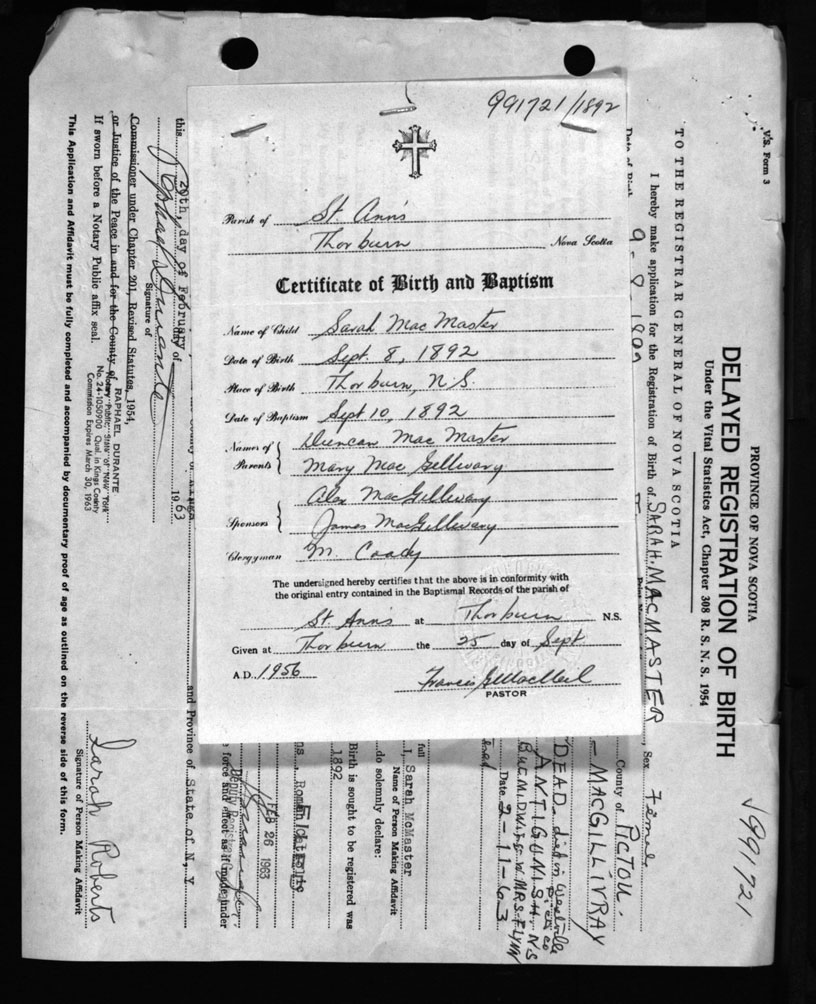 991721/1892
Parish of St. Ann's
Thorburn Nova Scotia
Certificate of Birth and Baptism
Name of Child Sarah Mac Master
Date of Birth Sept. 8, 1892
Place of Birth Thorburn, N.S.
Date of Baptism Sept 10, 1892
Names of Parents { Duncan Mac Master
Mary Mac Gillivary
Sponsors { Alex MacGillivary
James MacGillivary
Clergyman M. Coady
The undersigned hereby certifies that the above is in conformity with
the original entry contained in the Baptismal Records of the parish of
St Ann's at Thorburn N.S.
Given at Thorburn the 25 day of Sept
A.D. 1956
Francis MacNeil
PASTOR
V.S. Form 3
PROVINCE OF NOVA SCOTIA
DELAYED REGISTRATION OF BIRTH
Under the Vital Statistics Act, Chapter 308 R. S. N. S. 1954
√991721
TO THE REGISTRAR GENERAL OF NOVA SCOTIA
I hereby make application for the Registration of Birth of SARAH. MACMASTER Sex Female
Date of Birth 9-8-1892
County of PICTOU.
- MACGILLIVRAY
DEAD- died in Westville
ANTIGONISH NS
MIDWIFE W. MRS. FLYNN
Date 2-11-63
full
I, Sarah McMaster
Name of Person Making Affidavit
do solemnly declare:
Birth is sought to be registered was
1892
Roman Catholic
FEB 26 1963
Deputy Registrar
force and effect as if made under
and Province of State of N, Y
this 20th day of February, day of 1963
Signature of
Commissioner under Chapter 201, Revised Statutes, 1954,
or Justice of the Peace in and for the County of
If sworn before a Notary Public affix seal.
RAPHAEL DURANTE
Notary Public State of New York
No. 24-1050900 Qual. in Kings County
Commission Expires March 30, 1963
Sarah Roberts
Signature of Person Making Affidavit
This Application and Affidavit must be fully completed and accompanied by documentary proof of age as outlined on the reverse side of this form.